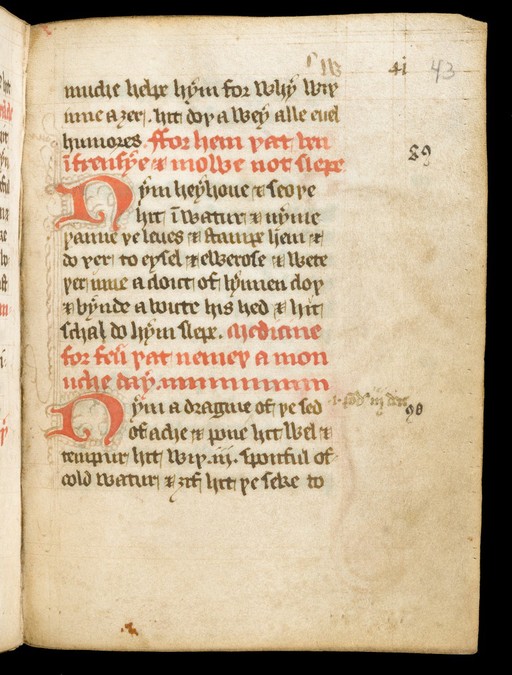 41 43
muche helpe hym for why wiþ
inne a ȝer. hit doþ a wey alle euel
humores. ffor hem þat ben
89
ī frensye & mowe not slepe
Nym heyhoue & seoþe
hit ī watur & nyme
þanne þe leues & stampe hem &
do þer to eysel & ewerose & wete
þer inne a clout of lynnen cloþ
& bynde a boute his hed & hit
schal do hym slepe. Medicine
for feli þat nemeþ a mon
uche day.
Nym a dragme of þe sed
90
of ache & poue hit wel &
tempur hit wiþ .iii. sponful of
cold watur & ȝif hit þe seke to